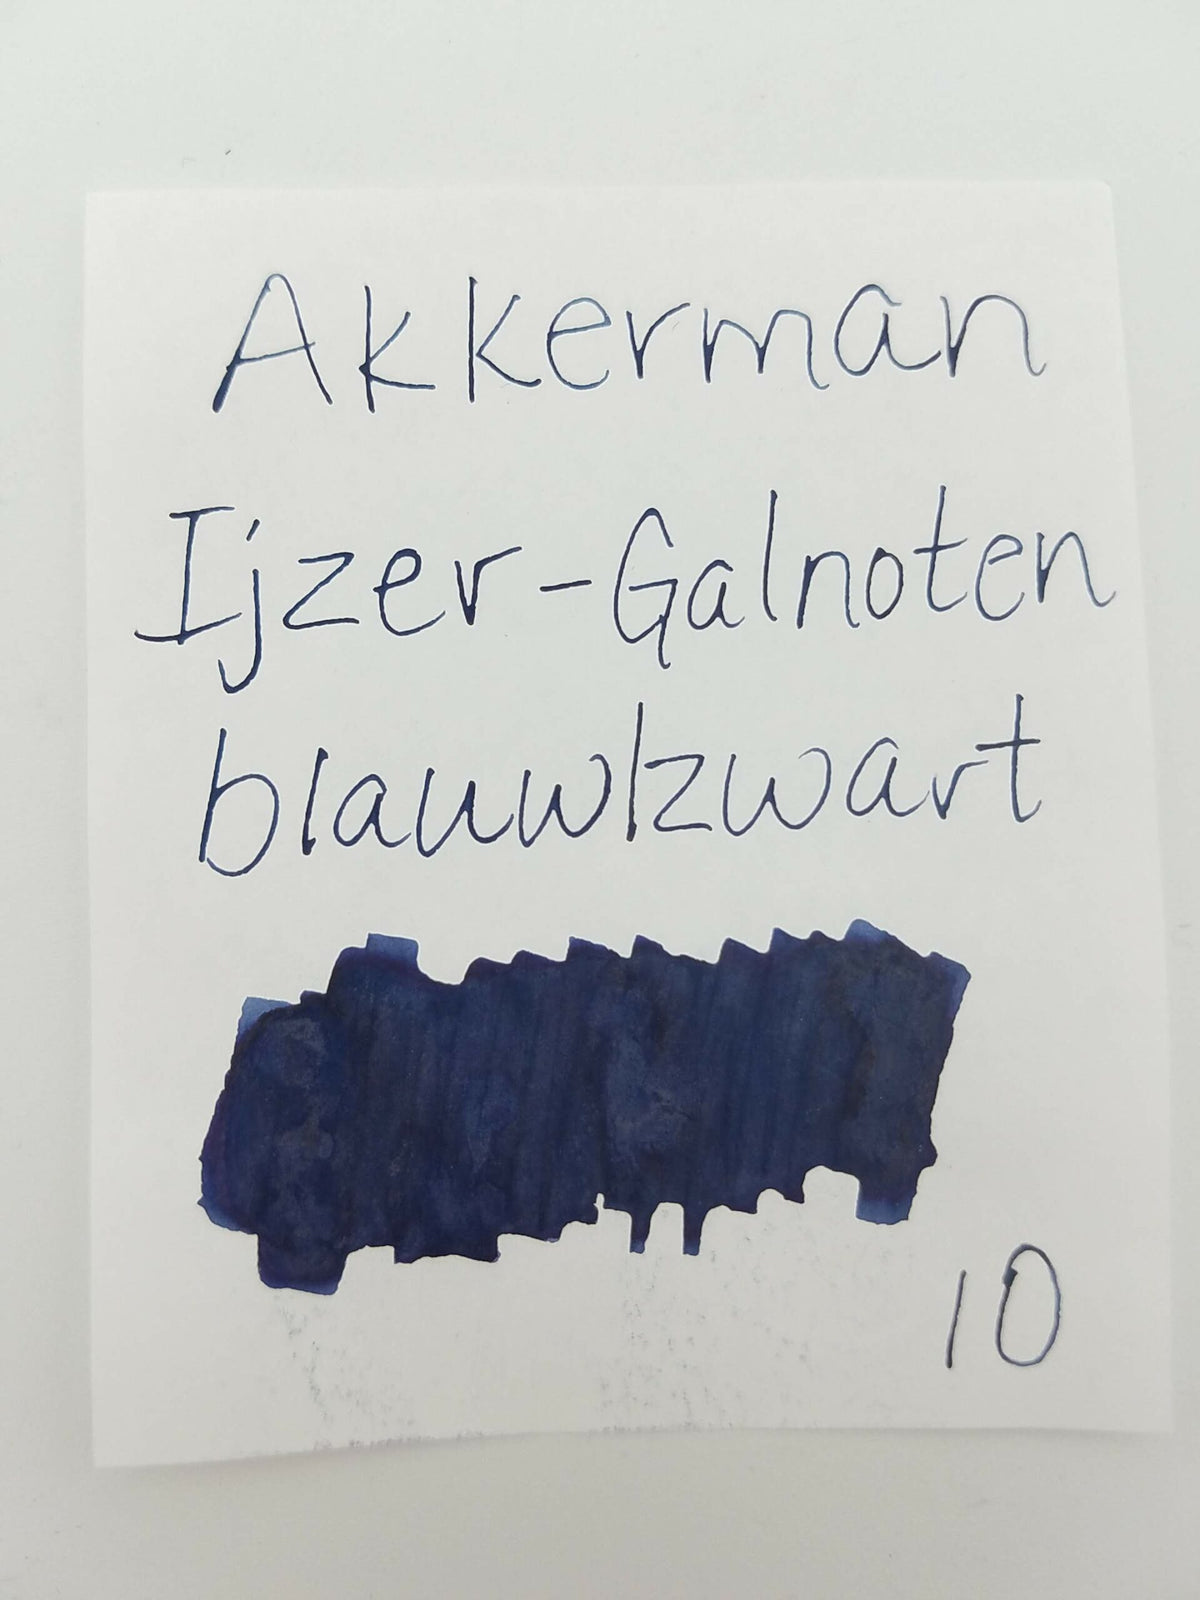 Akkerman
Ijzer-Galnoten
blauw|zwart
10